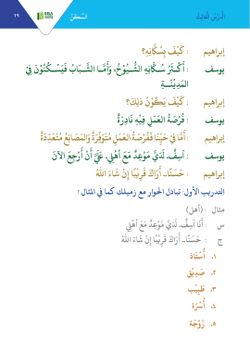 الدَّرْسُ الثَّالِثُ
السَّكَنُ
٢٩
إبراهيم : كَيْفَ سُكَّانُهُ؟
يوسف : أَكْثَرُ سُكَّانِهِ الشُّيُوخُ، وَأَمَّا الشَّبَابُ فَيَسْكُنُونَ فِي
المَدِيْنَةِ
إبراهيم : كَيْفَ يَكُوْنُ ذَلِكَ؟
يوسف : فُرْصَةُ العَمَلِ فِيْهِ نَادِرَةٌ
إبراهيم : أَمَّا فِي حَيِّنَا فَفُرْصَةُ العَمَلِ مُتَوَفِّرَةٌ وَالمَصَانِعُ مُتَعَدِّدَةٌ
يوسف : آسِفٌ، لَدَيَّ مَوْعِدٌ مَعَ أَهْلِي، عَلَيَّ أَنْ أَرْجِعَ الآنَ
إبراهيم : حَسَنًا.. أَرَاكَ قَرِيْبًا إِنْ شَاءَ اللهُ
التدريب الأول: تبادل الحوار مع زميلك كما في المثال !
مثال : (أهل)
س : أَنَا آسِفٌ، لَدَيَّ مَوْعِدٌ مَعَ أَهْلِي
ج : حَسَنًا.. أَرَاكَ قَرِيْبًا إِنْ شَاءَ اللهُ
١. أُسْتَاذ
٢. صَدِيْق
٣. طَبِيْب
٤. أُسْرَة
٥. زَوْجَة